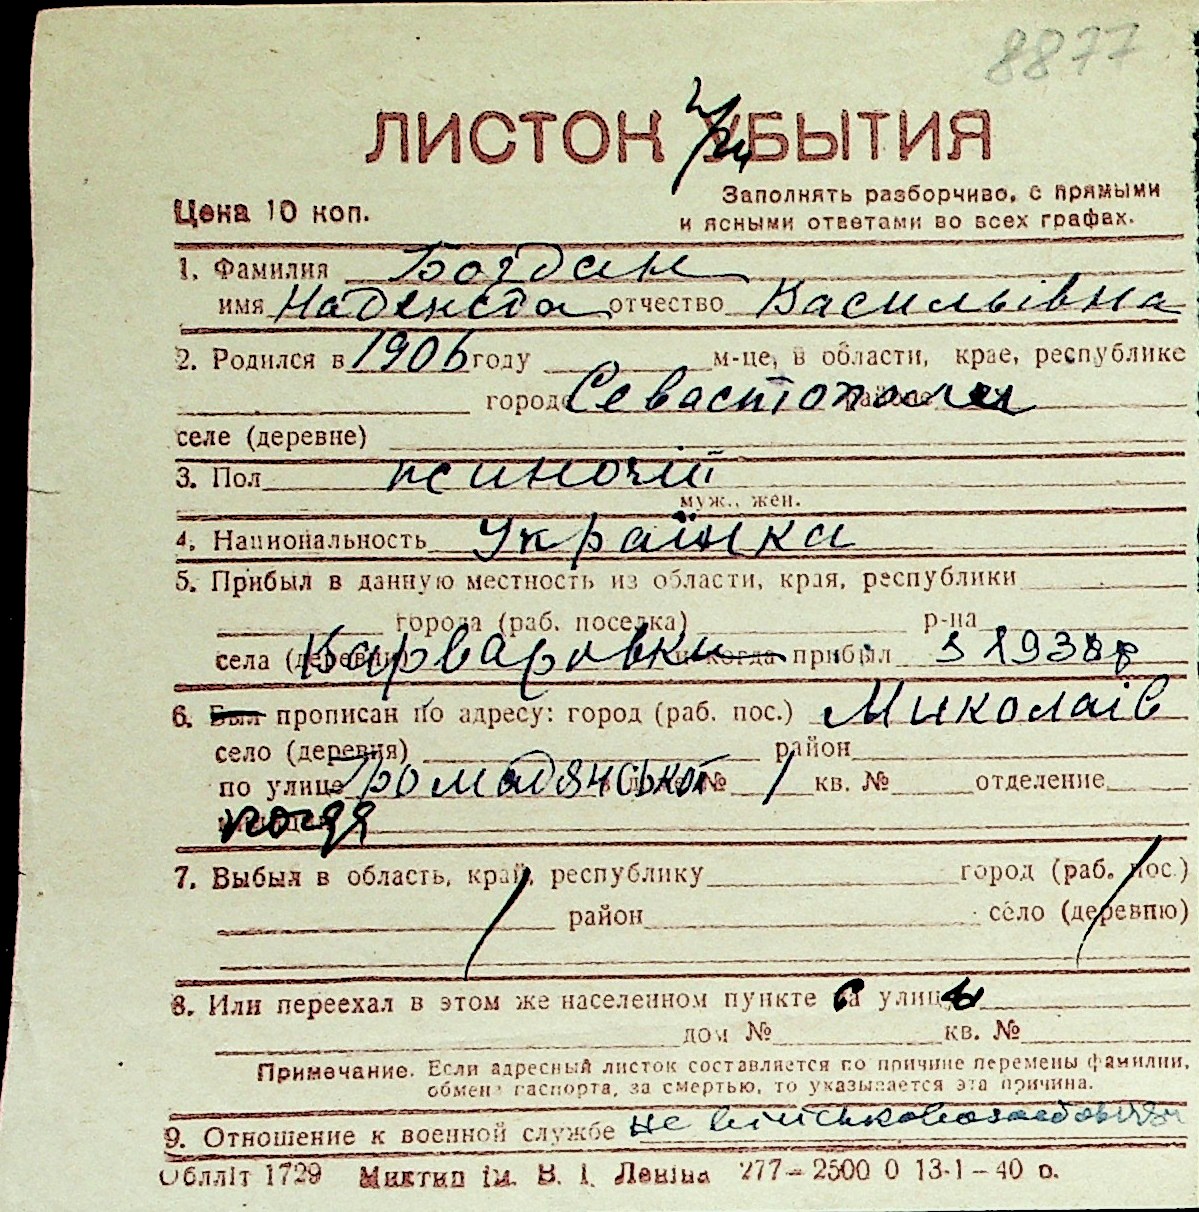 8877
ЛИСТОК УБЫТИЯ
Цена 10 коп.
Заполнять разборчиво, с прямыми
и ясными ответами во всех графах.
1. Фамилия Богдан
имя Надежда отчество Васильівна
2. Родился в 1906 году м-це, в области, крае, республике
городе Севастополи
селе (деревне)
3. Пол жиночіт
муж., жен.
4. Национальность Українка
5. Прибыл в данную местность из области, края, республики
города (раб. поселка) р-на
села (деревни) Варваровки и когда прибыл з 1938 р
6. Был прописан по адресу: город (раб. пос.) Миколаів
село (деревня) район
по улице Громадянськой дом № 1 кв. № отделение
7. Выбыл в область, край, республику город (раб. пос.)
район село (деревню)
8. Или переехал в этом же населенном пункте улицы
дом № кв. №
Примечание. Если адресный листок составляется по причине перемены фамилии,
обмена паспорта, за смертью, то указывается эта причина.
9. Отношение к военной службе не військовозобовязан
Облліт 1729 Миктип ім. В. І. Леніна 277–2500 0 13-1–40 р.